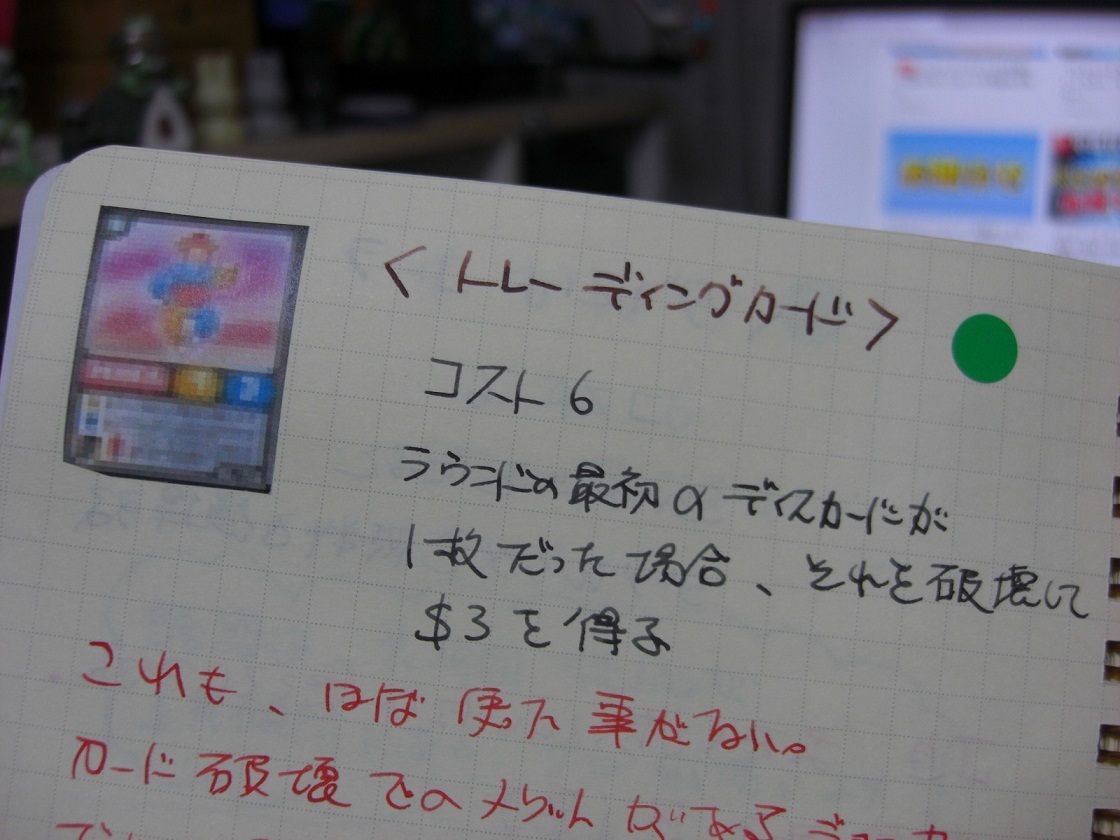 <トレーディングカード>
コスト6
ラウンドの最初のディスカードが
1枚だった場合、それを破壊して
$3を得る
これも、ほぼ使った事がない。
カード破壊でのメリットがあるジョーカー